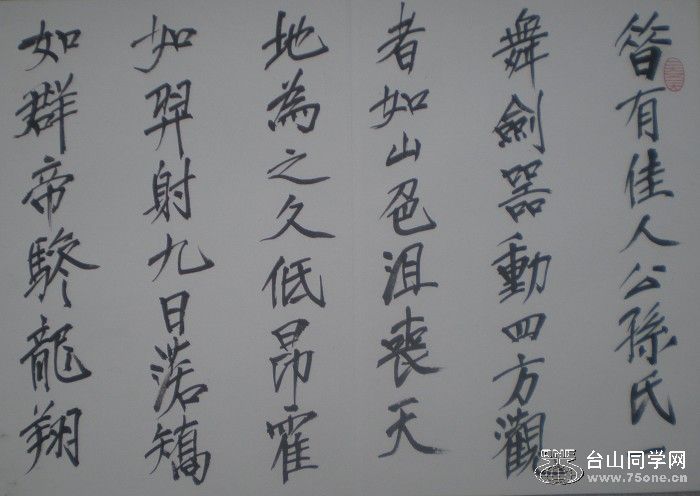 昔有佳人公孫氏一
舞劍器動四方觀
者如山色沮喪天
地為之久低昂霍
如羿射九日落矯
如群帝驂龍翔
台山同学网
www.75one.cn